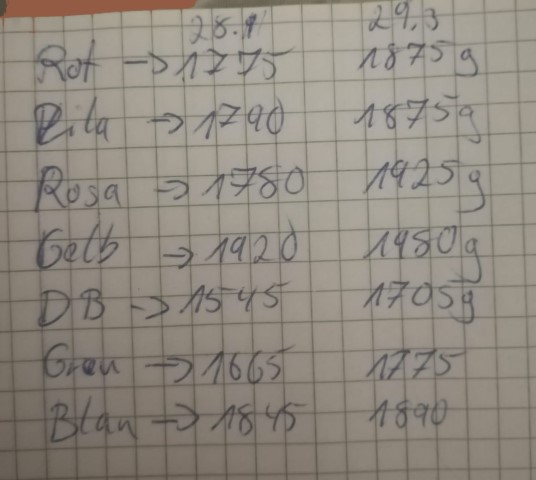 28.1 29.3
Rot -> 1775 1875g
Lila -> 1790 1875g
Rosa -> 1780 1925g
Gelb -> 1920 1980g
DB -> 1545 1705g
Grau -> 1665 1775
Blau -> 1845 1890